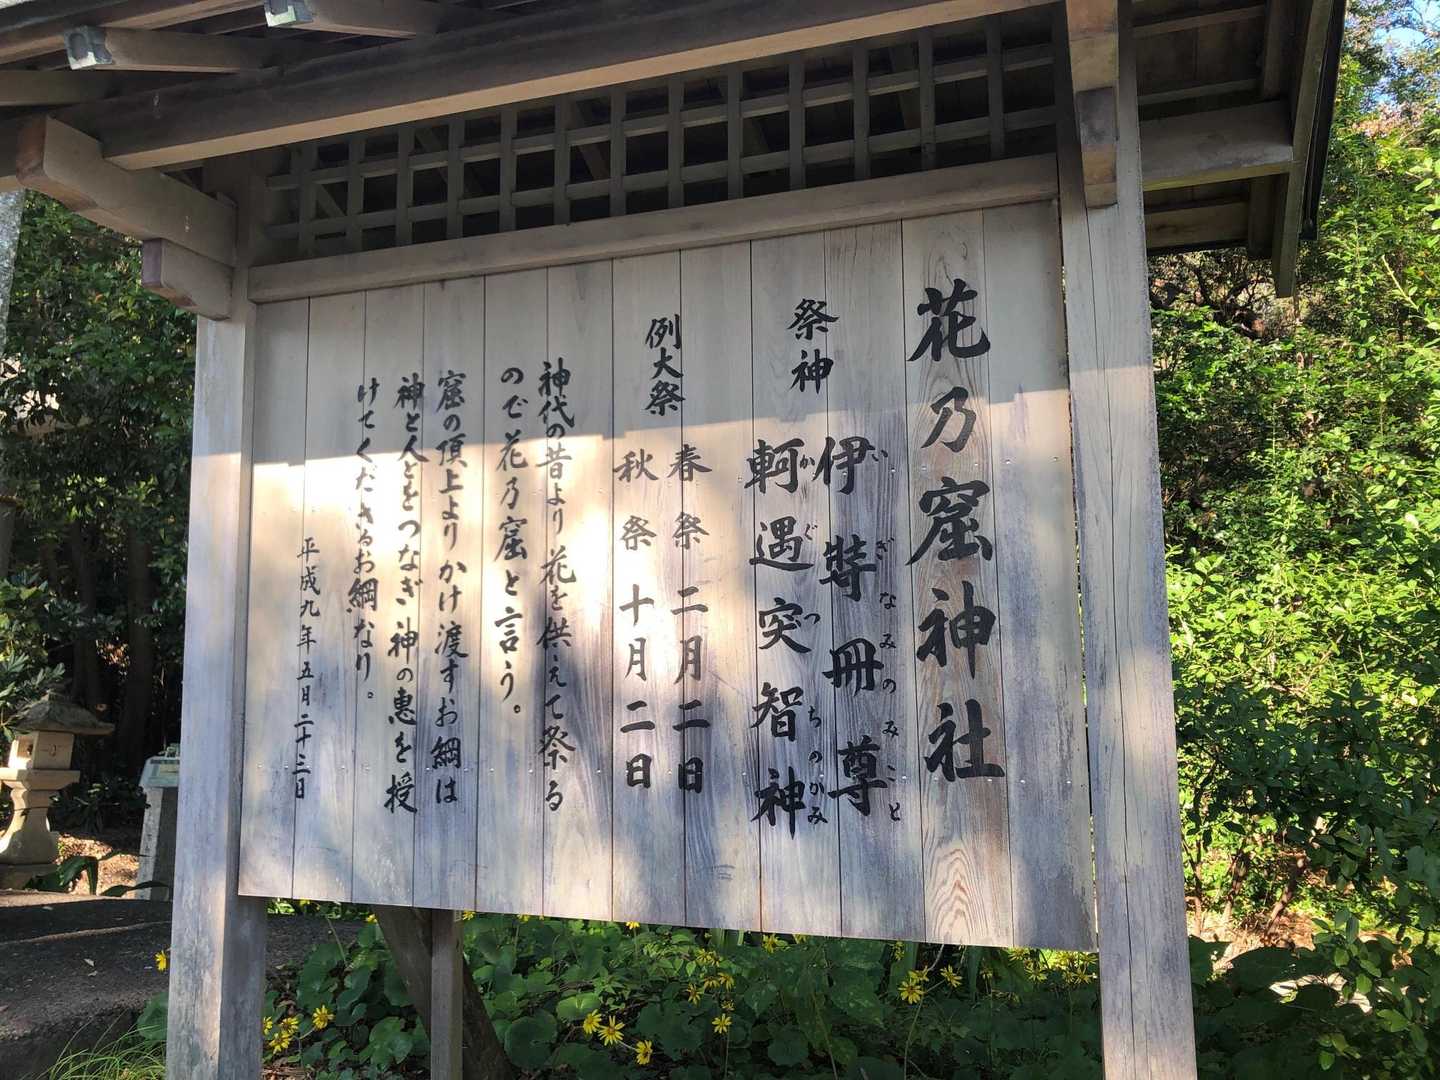 花乃窟神社
祭神
伊弉冊尊
いざなみのみこと
軻遇突智神
かぐつちのかみ
例大祭
春祭二月二日
秋祭十月二日
神代の昔より花を供えて祭る
ので花乃窟と言う。
窟の頂上よりかけ渡すお綱は
神と人とをつなぎ神の恵を授
けてくださるお綱なり。
平成九年五月二十三日